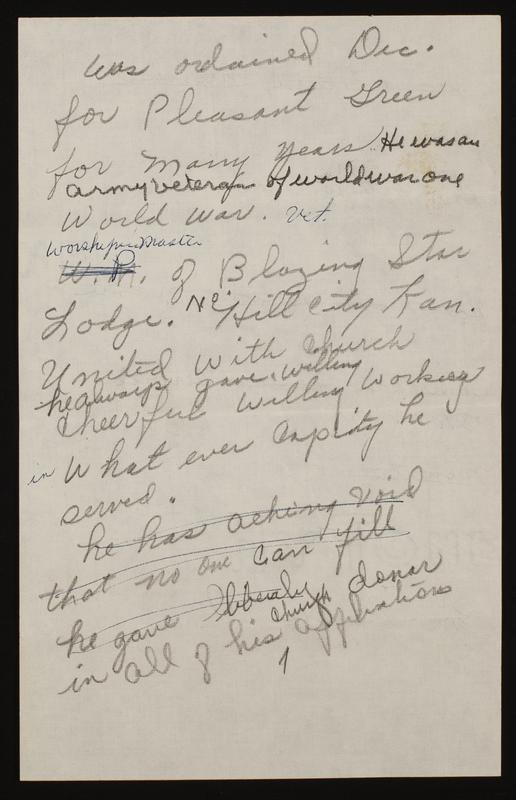 was ordained Dec.
for Pleasant Green
for many years. He was an
army veteran of world war one
World War. Vet.
Worshipin Master
W.M. of Blazing Star
Lodge. No. Hill City Kan.
United with Church
he always gave willing
Cheerful willing working
in What ever Capity he
served.
he has aching void
that no one can fill
he gave liberaly donar
church
in all of his affiliations
1